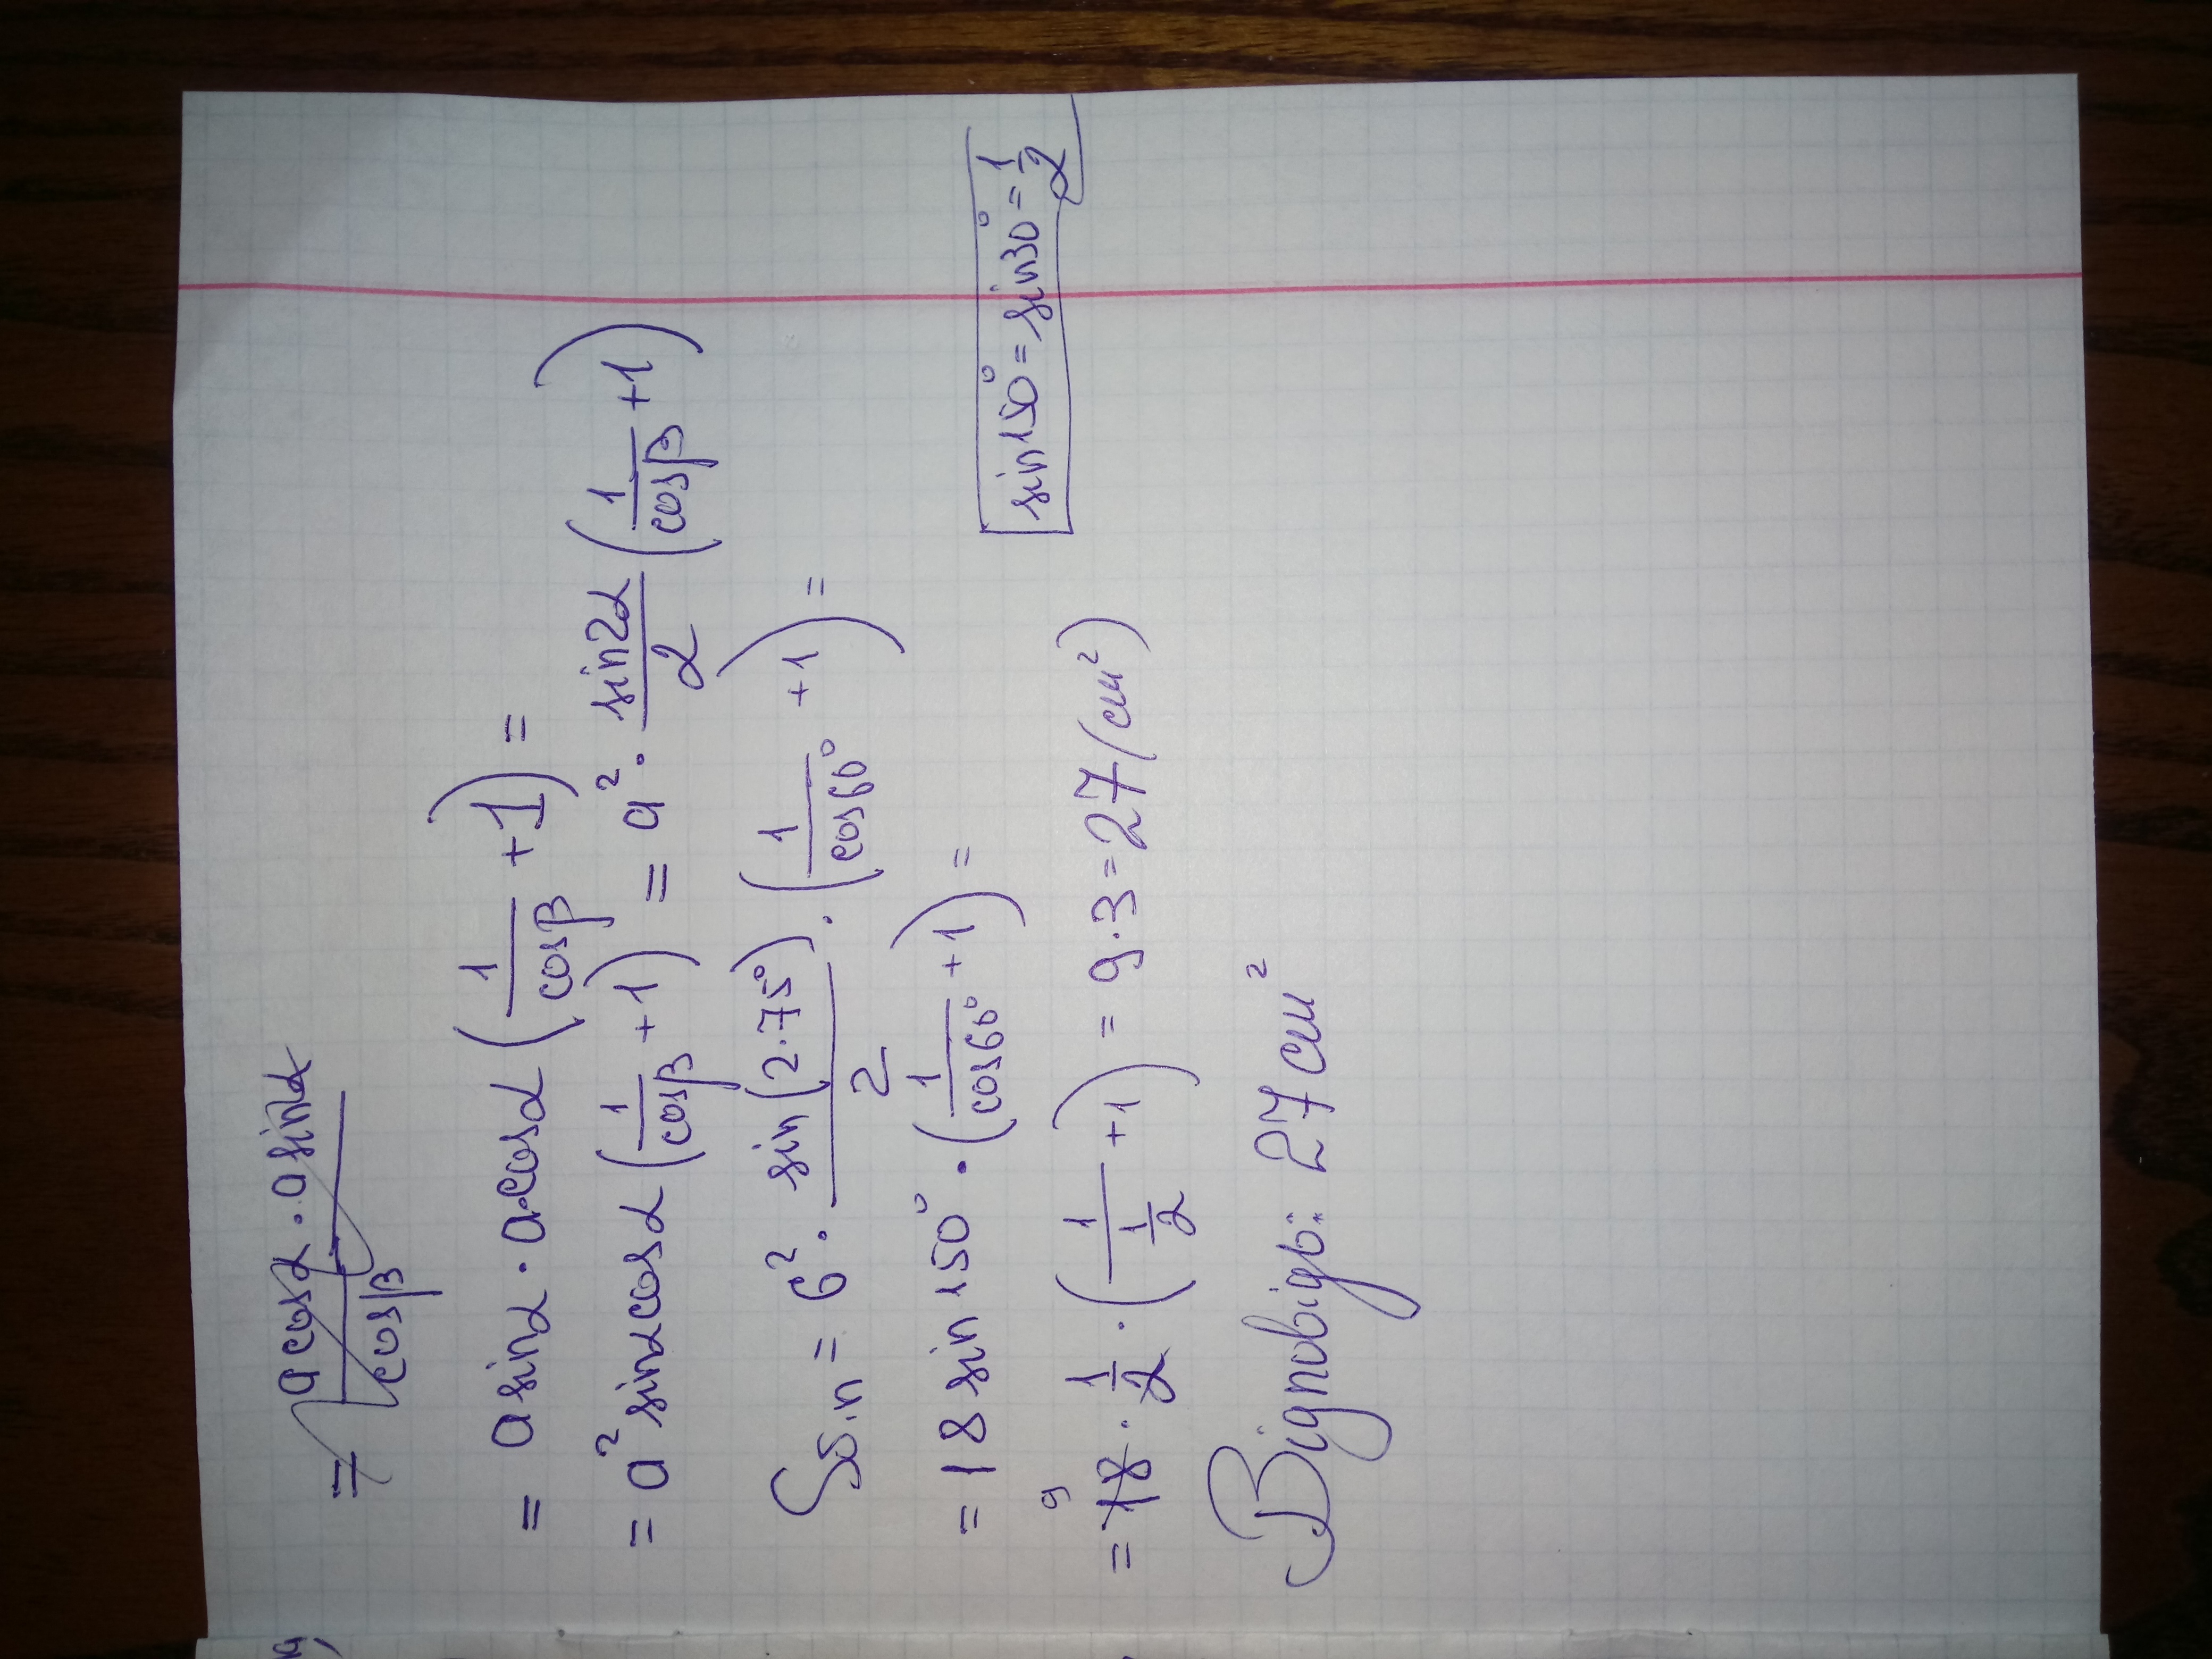 = a cosα · a sinα / cosβ
= a sinα · a·cosα (1/cosβ + 1) =
= a² sinα cosα (1/cosβ + 1) = a² · sin2α/2 (1/cosβ + 1)
Sб.п = 6² · sin(2·75°)/2 · (1/cos60° + 1) =
= 18 sin 150° · (1/cos60° + 1) =
sin150° = sin30° = 1/2
= 18 9 · 1/2 · (1/1/2 + 1) = 9·3 = 27 (см²)
Відповідь: 27 см²